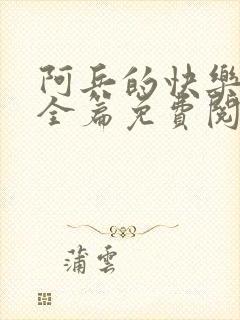 阿兵的快樂
全篇免費閱
蒲雲